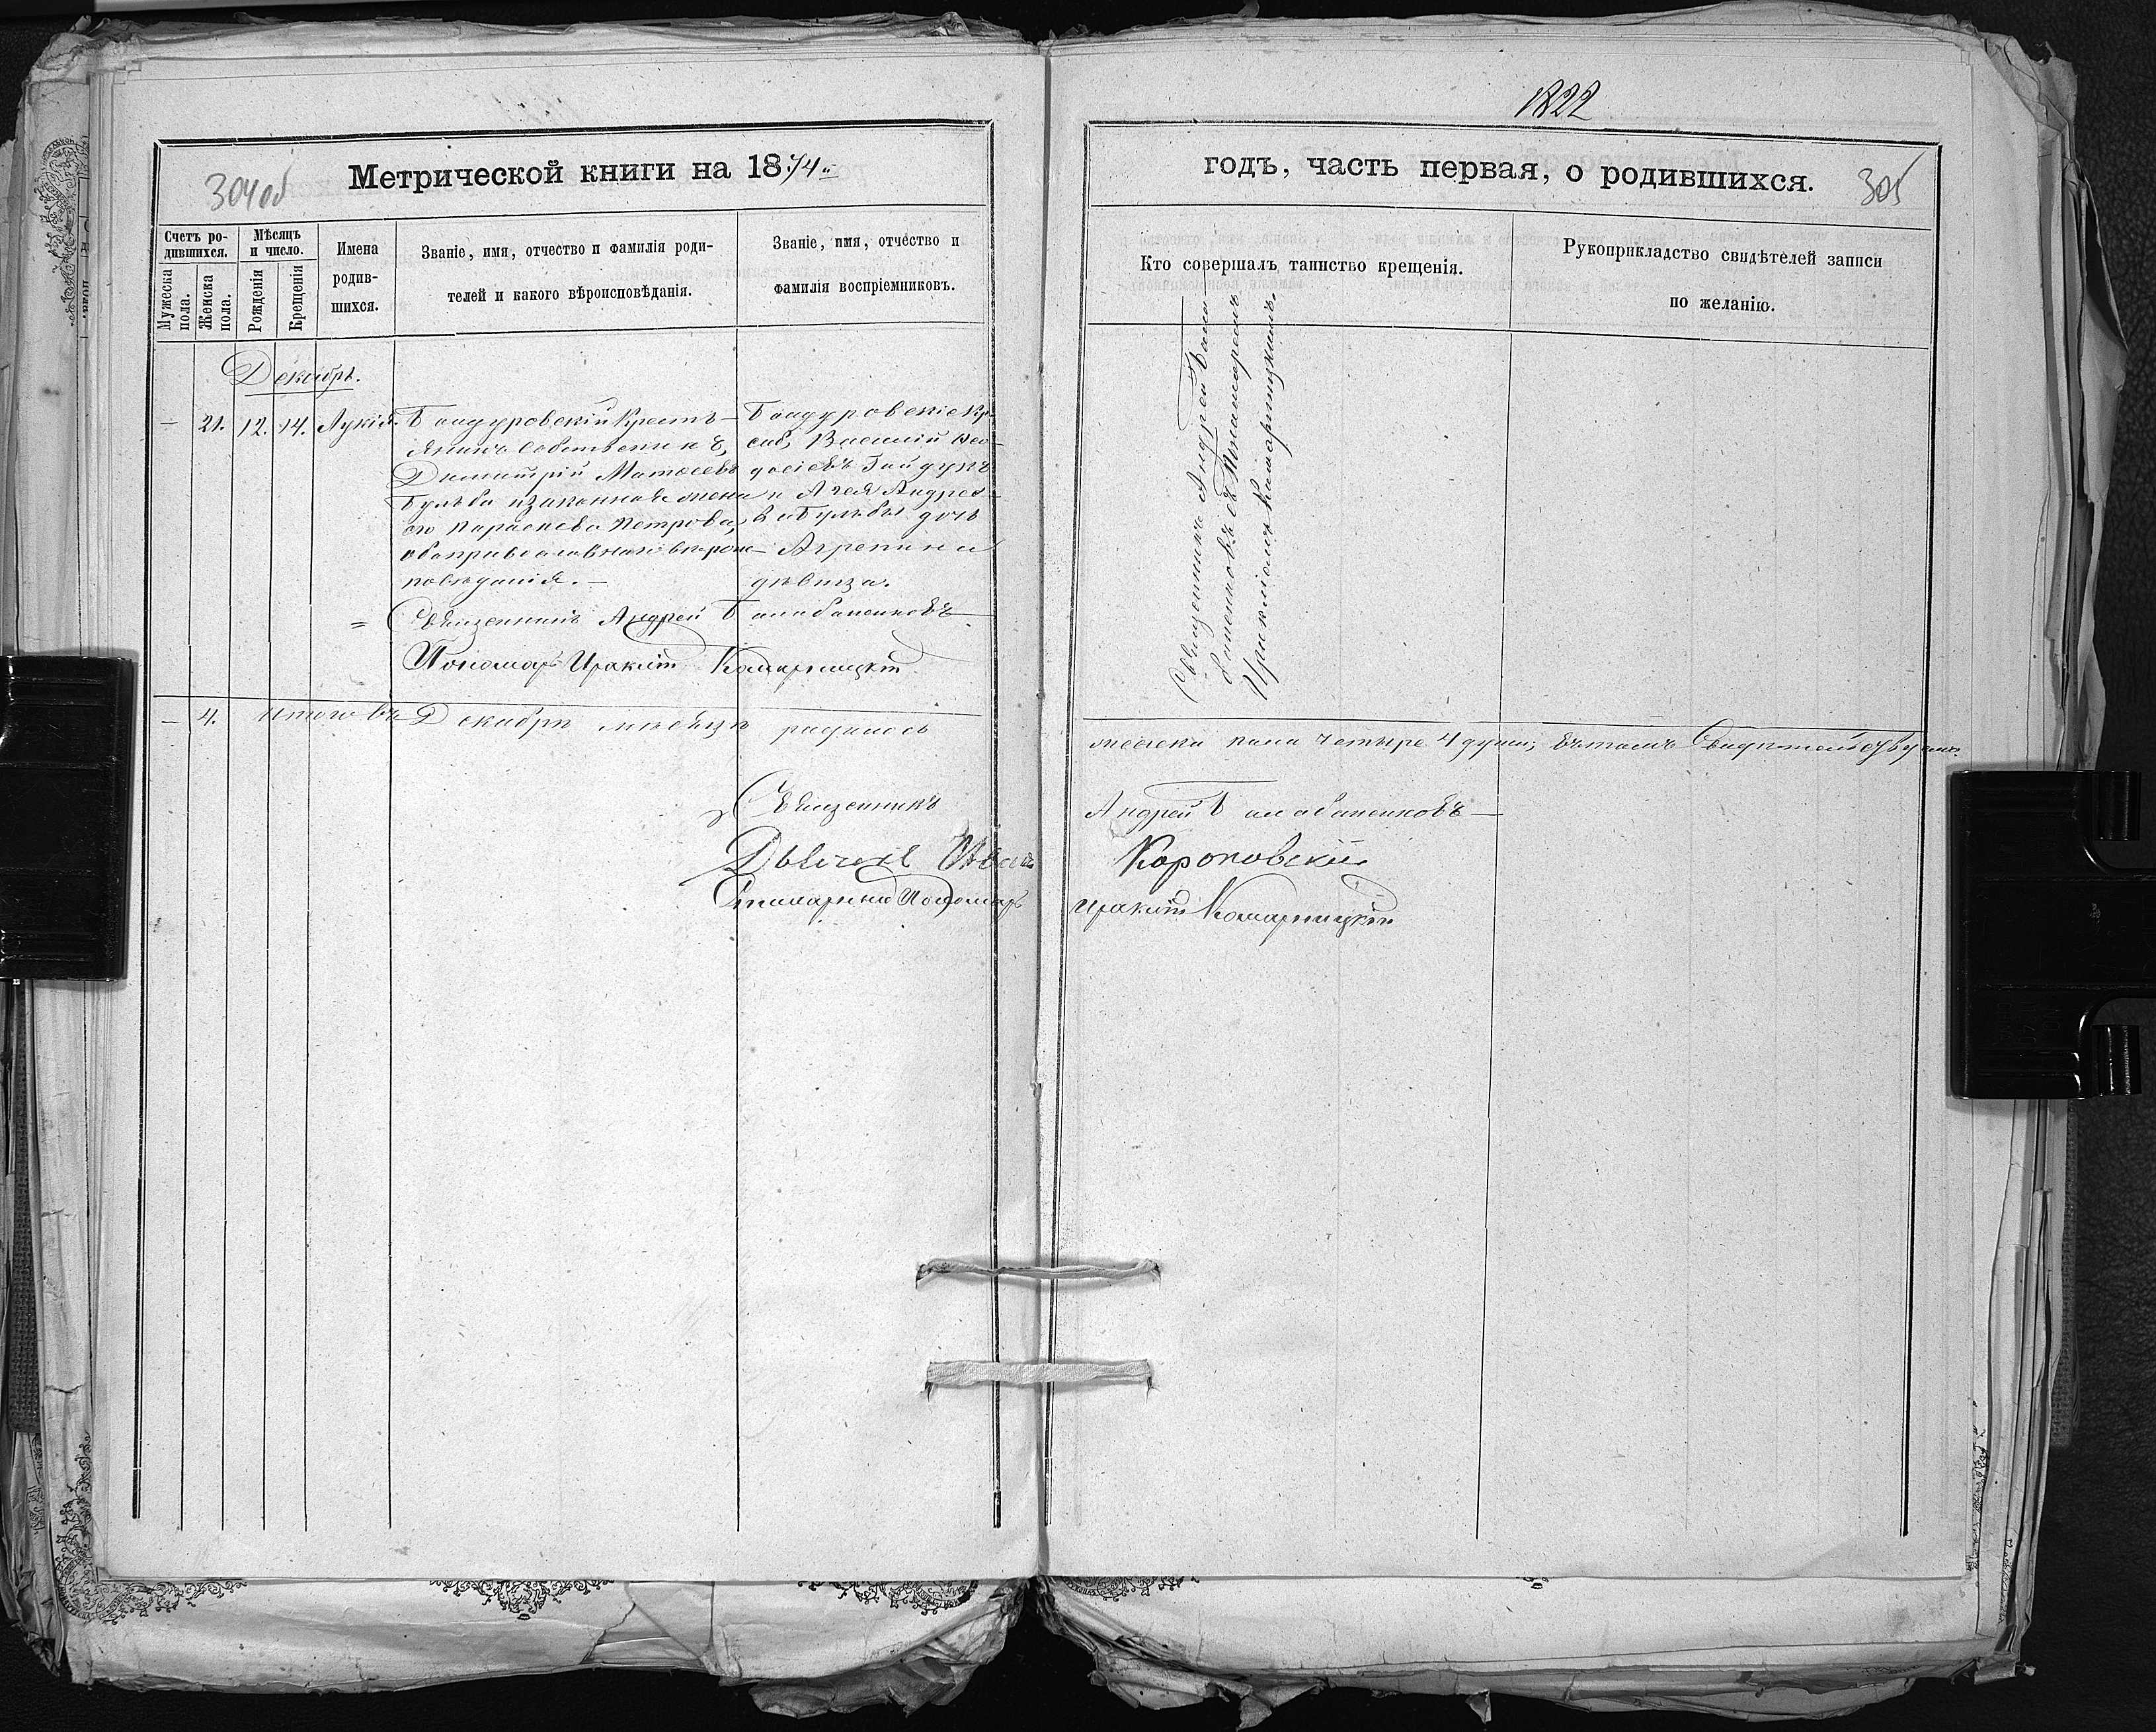 1822
Метрической книги на 1874
304об
годъ, часть первая, о родившихся.
305
Счетъ ро-
дившихся.
Мужеска
пола.
Женска
пола.
Мѣсяцъ
и число.
Рожденія
Крещенія
Имена
родив-
шихся.
Званіе, имя, отчество и фамилія роди-
телей и какого вѣроисповѣданія.
Званіе, имя, отчество и
фамилія воспріемниковъ.
Кто совершалъ таинство крещенія.
Рукоприкладство свидѣтелей записи
по желанію.
Декабрь.
— 21. 12. 14. Лукія.
Бандуровскій Кресть-
янинъ Собственникъ,
Димитрій Матѳеевъ
Бульба и законная жена
его Параскева Петрова,
оба православнаго вѣроис-
повѣданія. —
Бандуровскіе кр.
соб, Василій Ѳео-
досіевъ Гайдукъ
и Андрея
Бульбы дочь
Агрепина
дѣвица.
= Священникъ Андрей Балабаненковъ
Пономарь Ираклій Комарницкій
Священникъ Андрей Бала-
баненковъ съ Пономаремъ
Иракліемъ Комарницкимъ.
— 4. Итого въ Декабрѣ мѣсяцѣ родилось
женска пола четыре 4 души; въ томъ
Священникъ Андрей Балабаненковъ —
Дьячекъ Иванъ
Пономарь Ираклій Комарницкій